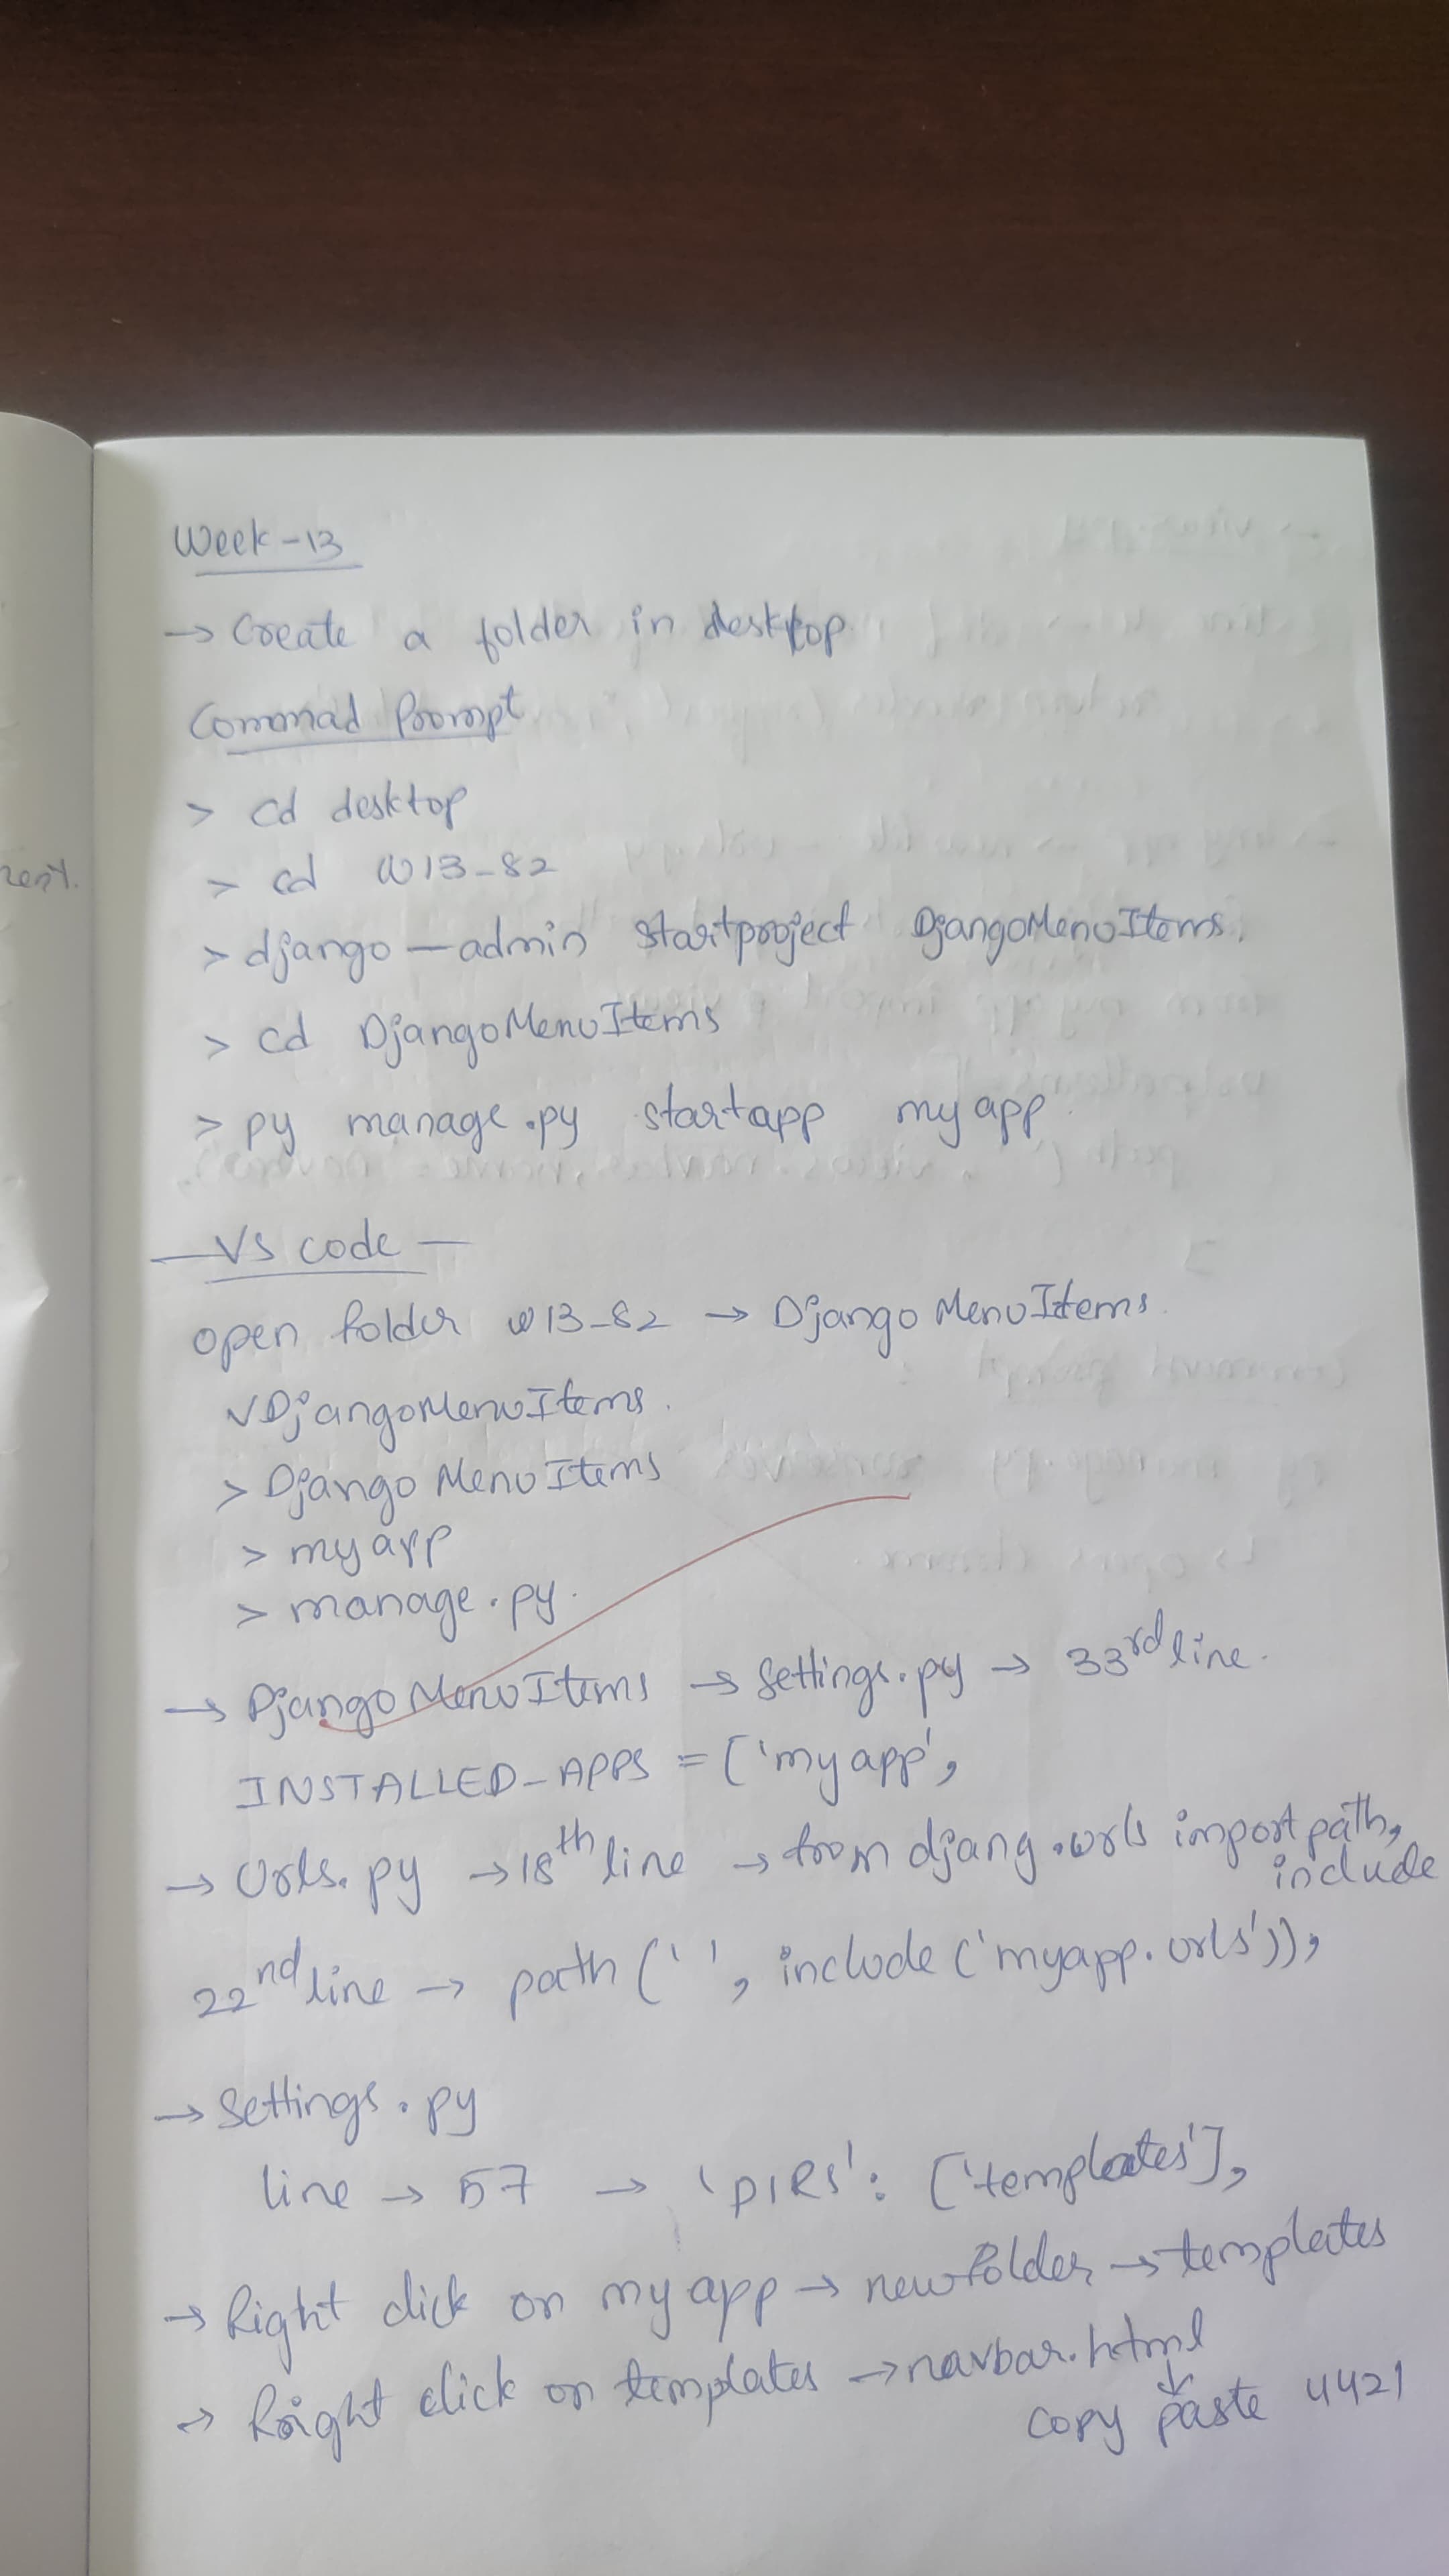 Week-13
→ Create a folder in desktop
Commad Prompt
> cd desktop
> cd W13-82
> django-admin startproject DjangoMenuItems.
> cd DjangoMenuItems
> py manage.py startapp myapp
— VS code —
open folder w13-82 → DjangoMenuItems.
∨ DjangoMenuItems.
> DjangoMenuItems
> myapp
> manage.py.
→ DjangoMenuItems → Settings.py → 33rd line.
INSTALLED_APPS = ['myapp',
→ Urls.py → 18th line → from djang.urls import path,
include
22nd line → path(' ', include('myapp.urls')),
→ Settings.py
line → 57 → 'DIRS': ['templates'],
→ Right click on myapp → newfolder → templates
→ Right click on templates → navbar.html
↓
copy paste 4421